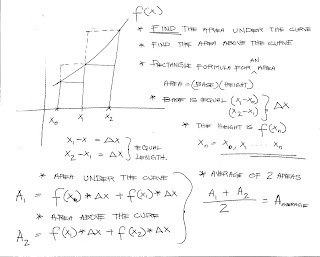 f(x)
* FIND THE AREA UNDER THE CURVE
* FIND THE AREA ABOVE THE CURVE
* RECTANGLE FORMULA FOR AN AREA
AREA = (BASE)(HEIGHT)
* BASE IS EQUAL (x₁-x₀)
(x₂-x₁) } Δx
x₀ x₁ x₂
* THE HEIGHT IS f(xₙ)
xₙ = x₀, x₁ ..... xₙ
x₁-x = Δx
x₂-x₁ = Δx } EQUAL LENGTH.
* AREA UNDER THE CURVE
A₁ = f(x₀)*Δx + f(x₁)*Δx
* AREA ABOVE THE CURVE
A₂ = f(x₁)*Δx + f(x₂)*Δx
* AVERAGE OF 2 AREAS
A₁ + A₂
2
= A AVERAGE